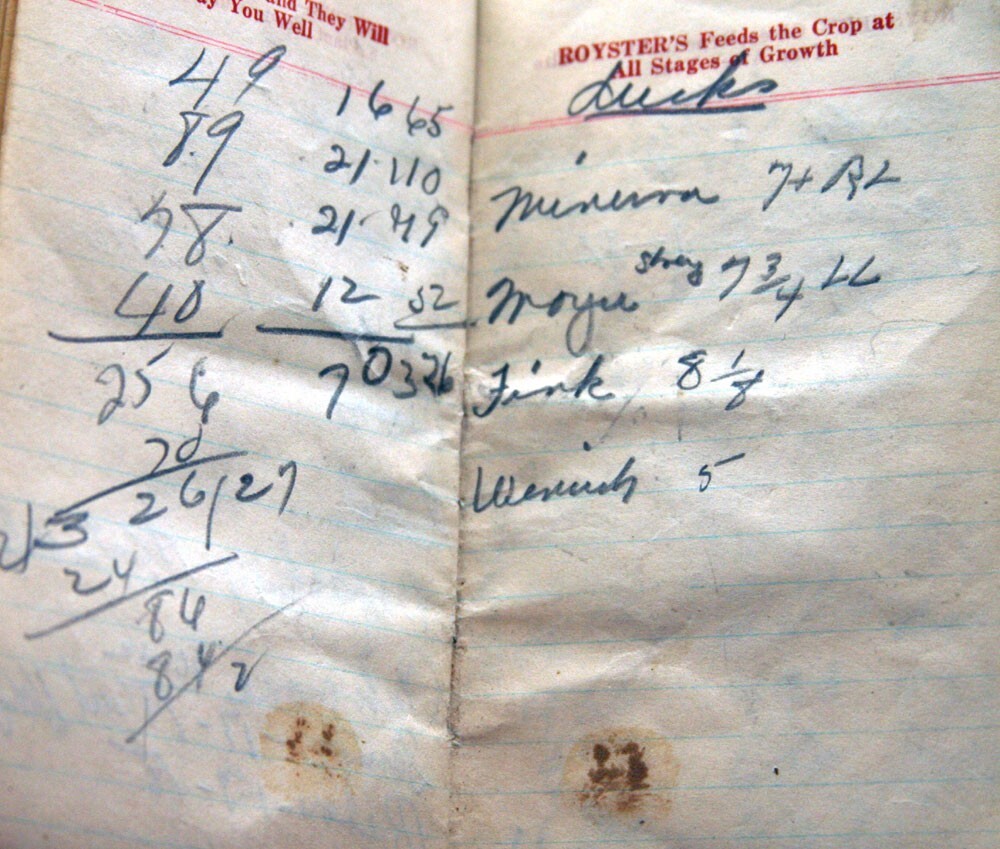 and They Will
ay You Well
49 16 65
89 21 110
78 21 79
40 12 52
256 70 326
20
12 3 26 27
24
86
84 2
ROYSTER'S Feeds the Crop at
All Stages of Growth
Ducks
Minerva 7+ RL
Moyer strong 7 3/4 LL
Fink 8 1/8
5